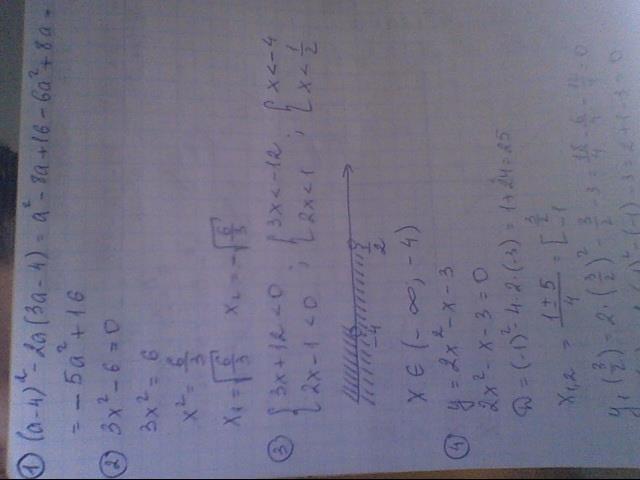 1) (a-4)² - 2a(3a-4) = a² - 8a + 16 - 6a² + 8a =
= -5a² + 16
2) 3x² - 6 = 0
3x² = 6
x² = 6/3
x₁ = √(6/3) x₂ = -√(6/3)
3) { 3x+12<0 ; { 3x<-12 ; { x<-4
{ 2x-1<0 ; { 2x<1 ; { x<1/2
-4 1/2
x ∈ (-∞, -4)
4) y = 2x² - x - 3
2x² - x - 3 = 0
D = (-1)² - 4·2·(-3) = 1+24 = 25
x₁,₂ = (1±5)/4 = [ 3/2
-1
y₁(3/2) = 2·(3/2)² - 3/2 - 3 = 18/4 - 6/4 - 12/4 = 0
(-1)² - (-1) - 3 = 2+1-3 = 0